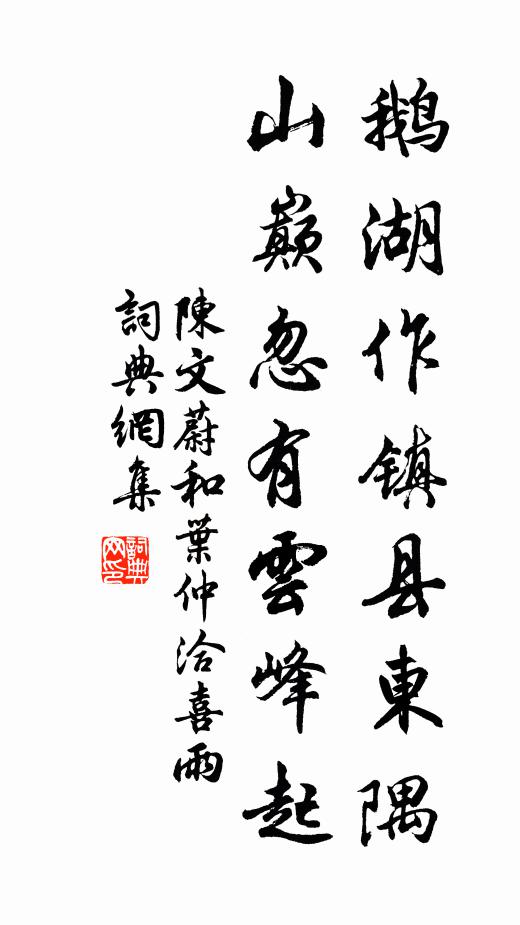 鹅湖作镇县東隅
山巅忽有雲峰起
陳文蔚和葉仲洽喜雨
詞典網集
詞典网印